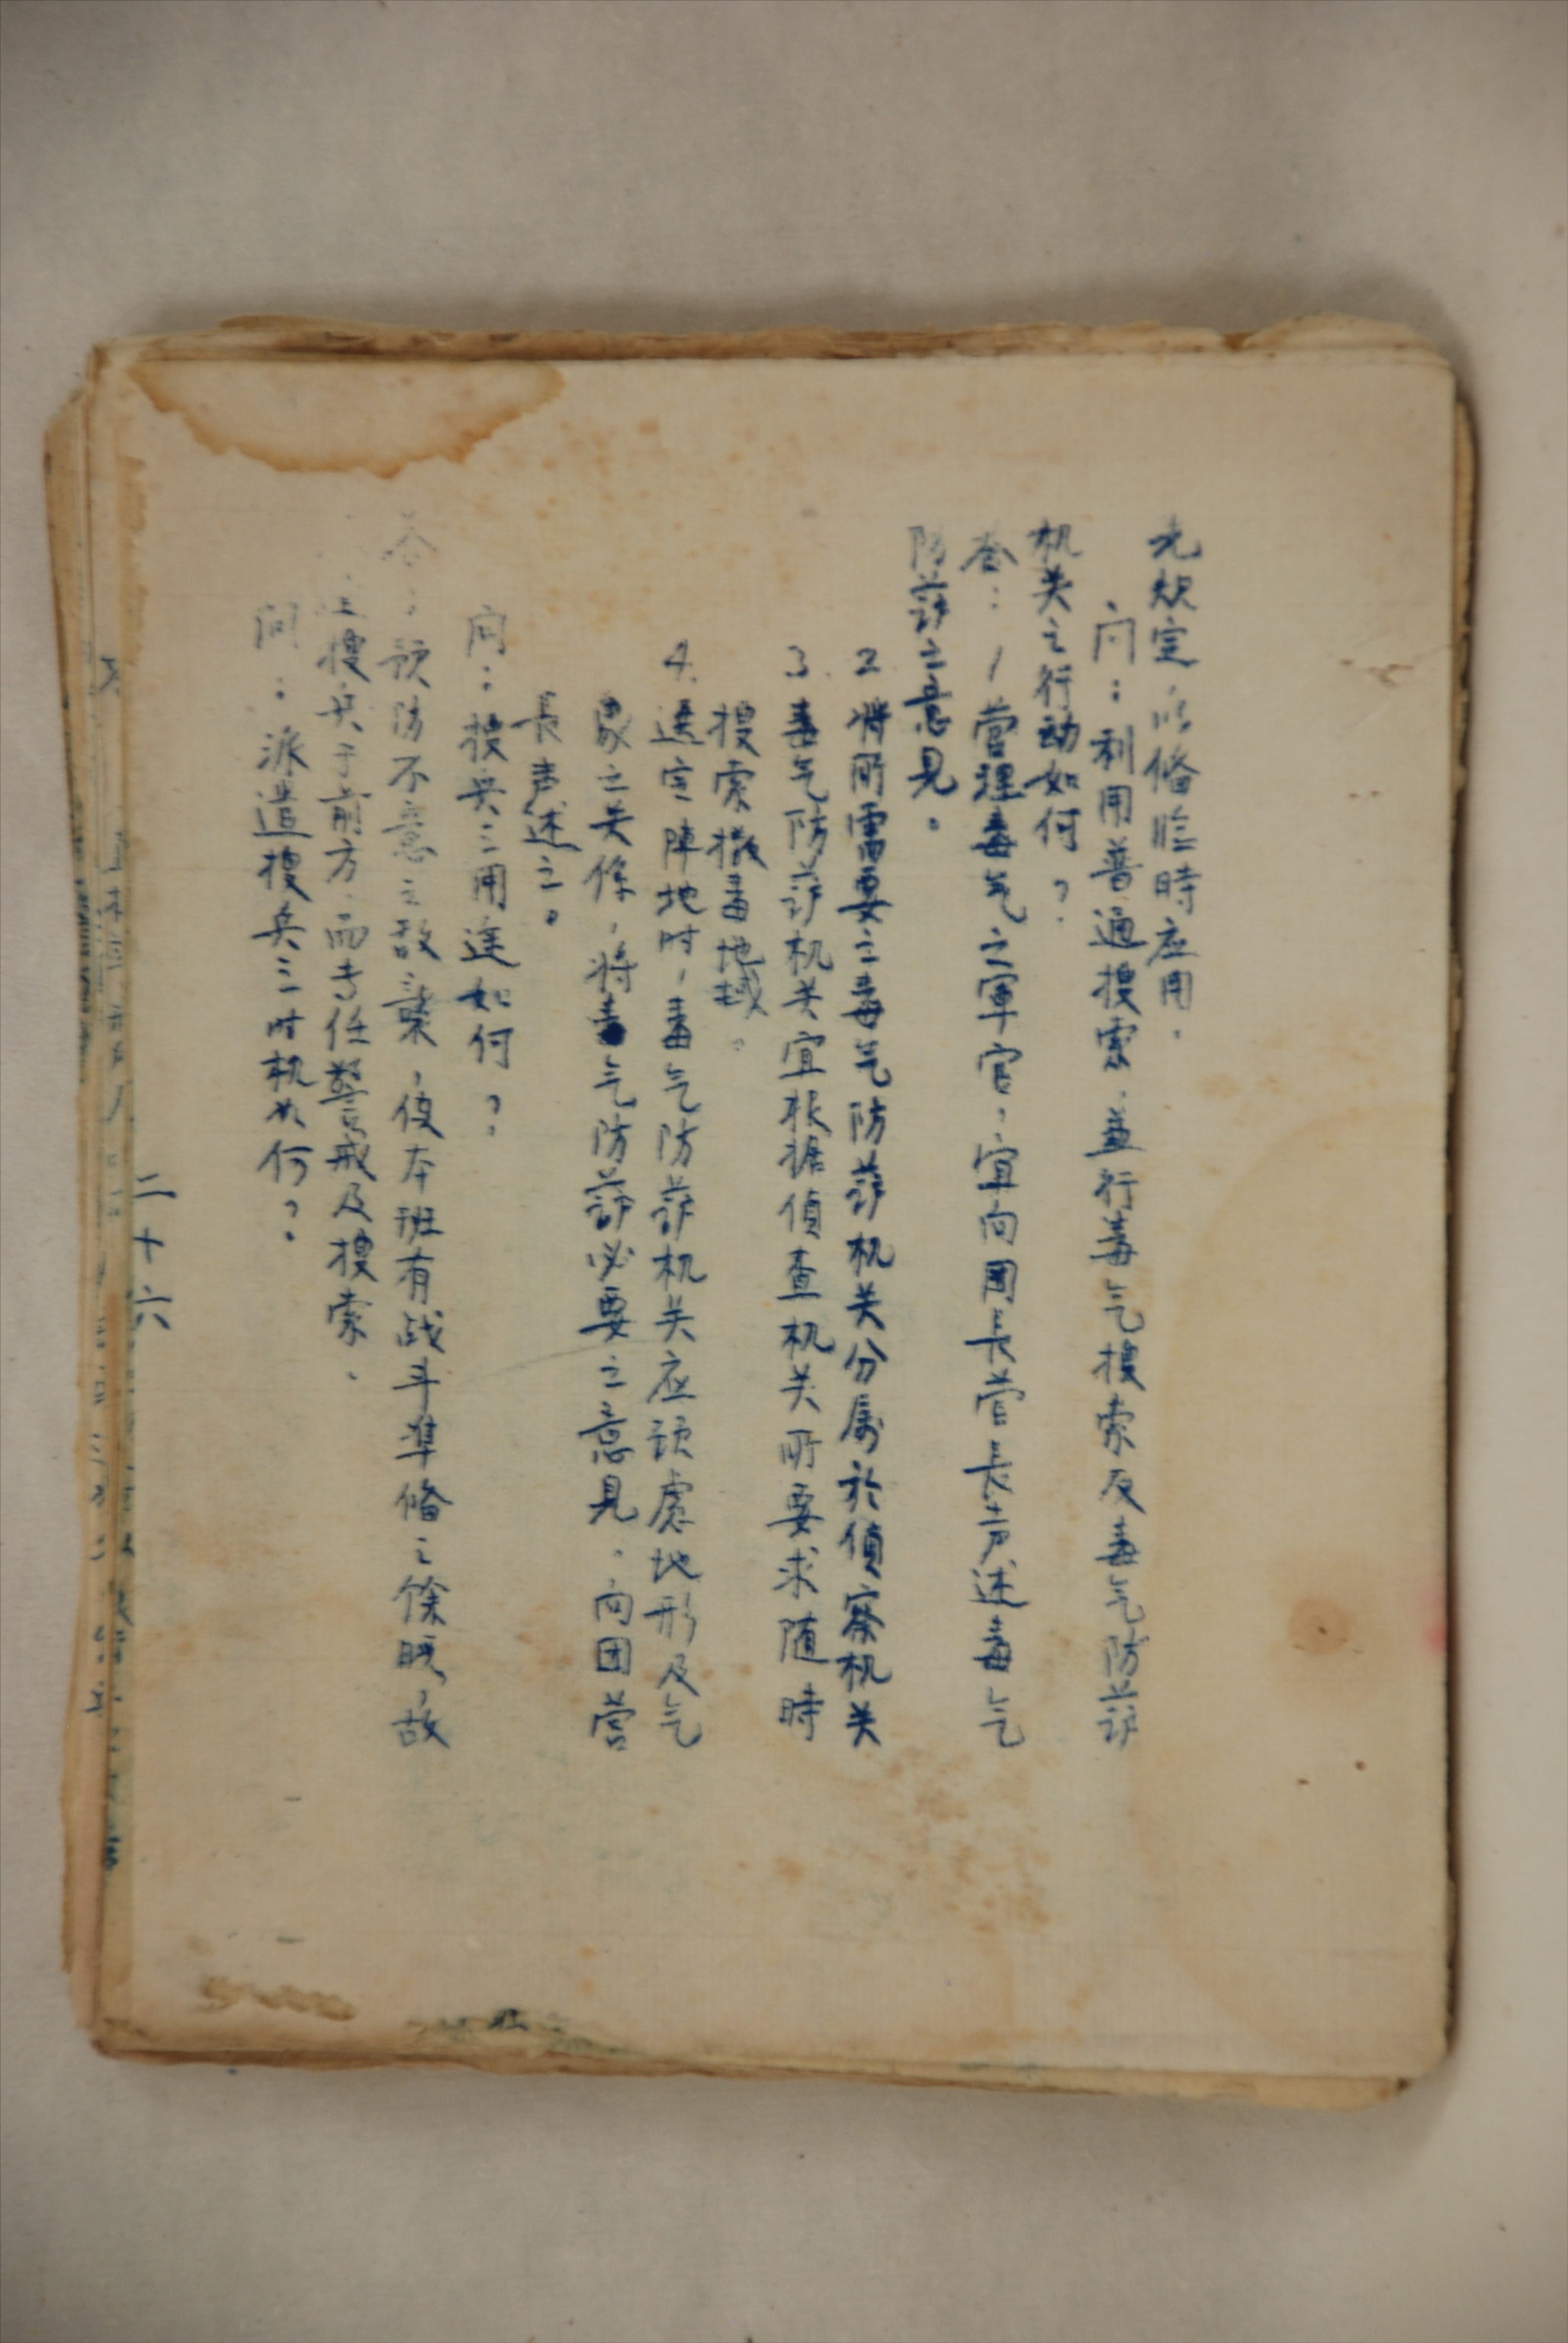 先规定，以偹临時应用．
问：利用普通搜索，並行毒气搜索及毒气防護
机关之行动如何？
答：1营理毒气之軍官，宜向团長营長声述毒气
防護之意見。
2將所需要之毒气防護机关分属於偵察机关
3.毒气防護机关宜根据偵查机关所要求随時
搜索撒毒地域。
4.选定陣地时，毒气防護机关应預處地形及气
象之关係，将毒气防護必要之意見，向团营
長声述之。
问：搜兵之用途如何？
答：預防不意之敌襲，使本班有战斗準偹之馀暇，故
搜兵于前方，而专任警戒及搜索．
问：派遣搜兵之时机如何？
二十六